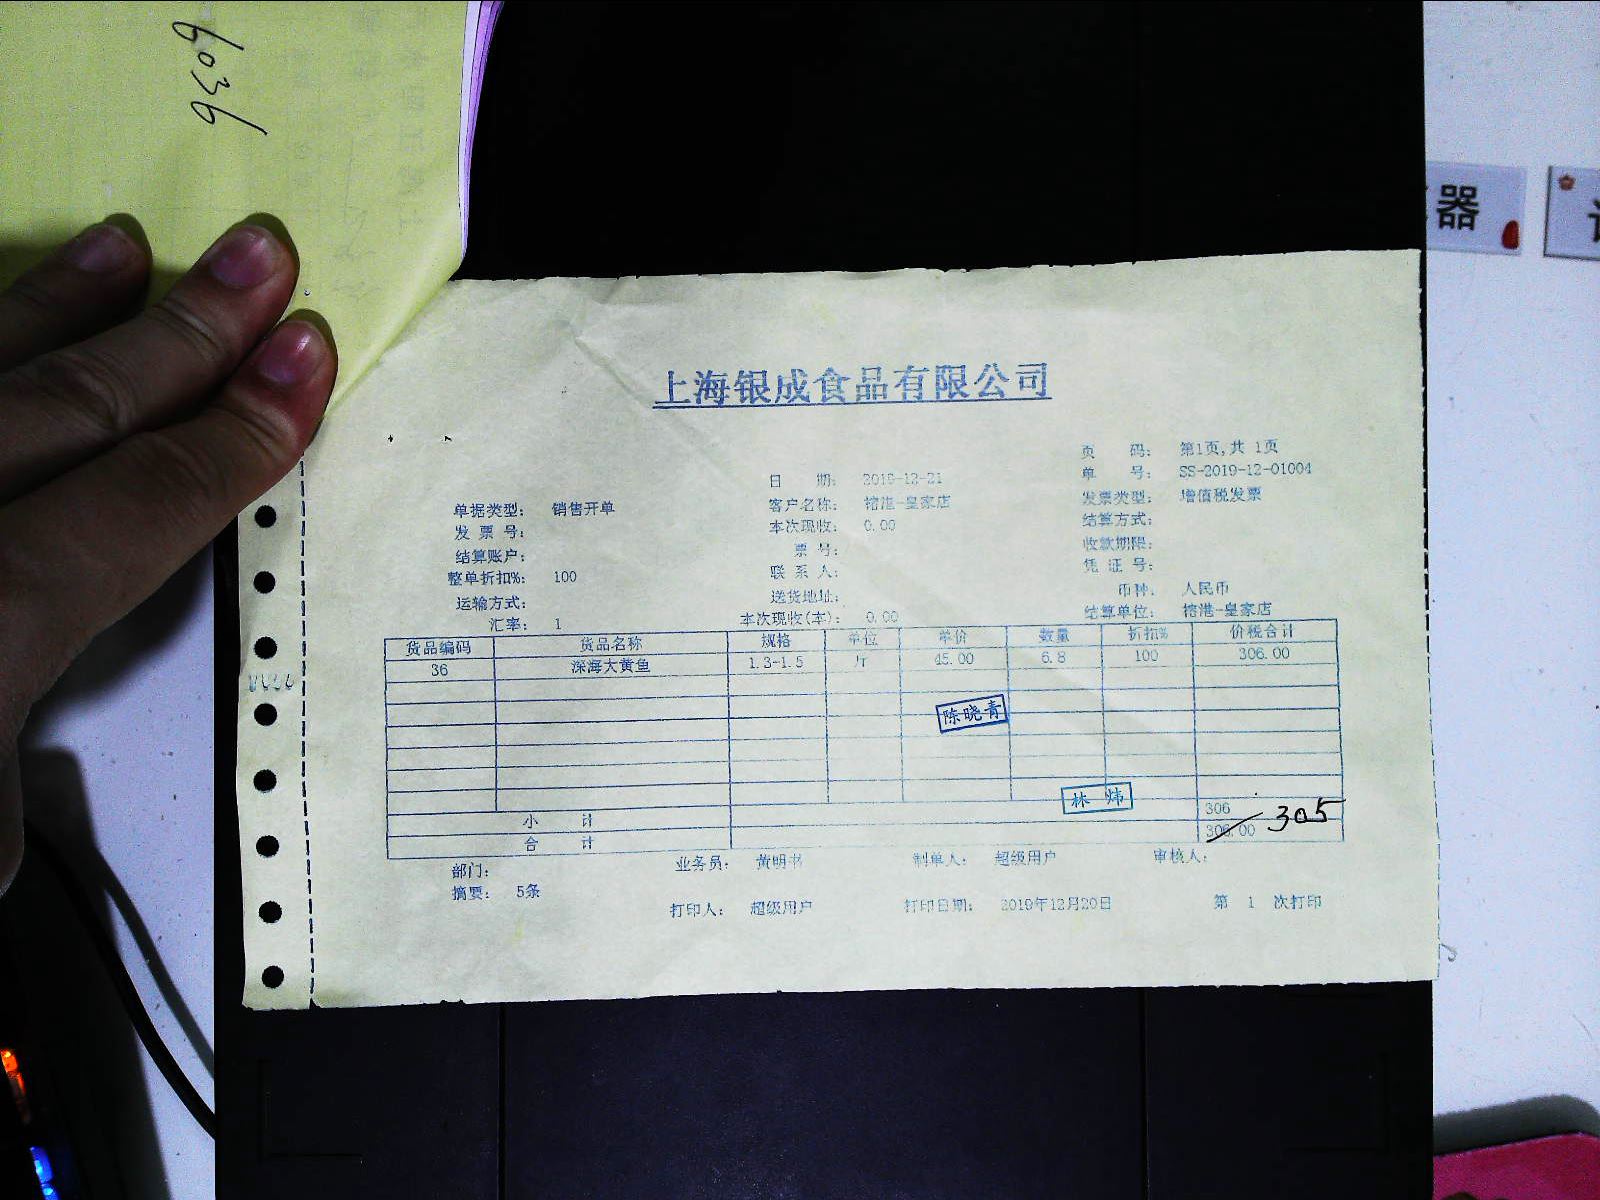 6036
器
上海银成食品有限公司
页 码： 第1页,共 1页
日 期： 2019-12-21
单 号： SS-2019-12-01004
单据类型： 销售开单
客户名称： 榕港-皇家店
发票类型： 增值税发票
发 票 号：
本次现收： 0.00
结算方式：
结算账户：
票 号：
收款期限：
整单折扣%： 100
联 系 人：
凭 证 号：
运输方式：
送货地址：
币种： 人民币
汇率： 1
本次现收(本)： 0.00
结算单位： 榕港-皇家店
货品编码 货品名称 规格 单位 单价 数量 折扣% 价税合计
36 深海大黄鱼 1.3-1.5 斤 45.00 6.8 100 306.00
陈晓青
林炜
小 计 306
合 计 306.00 305
部门： 业务员： 黄明书 制单人： 超级用户 审核人：
摘要： 5条
打印人： 超级用户 打印日期： 2019年12月20日 第 1 次打印